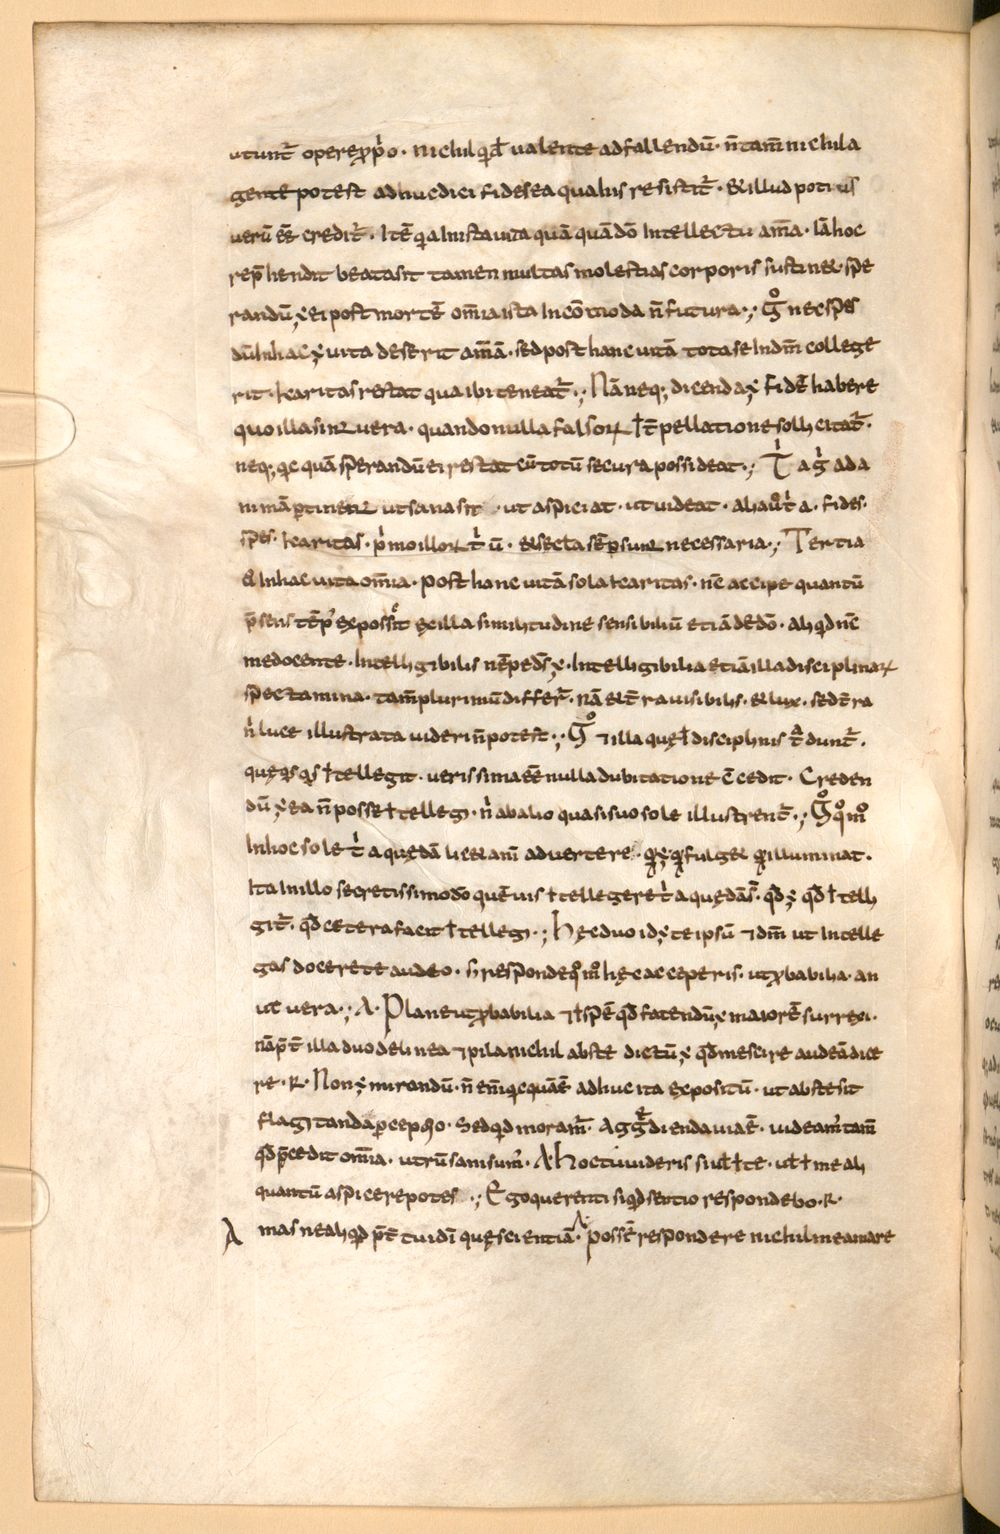 utunt̄ opere ꝓp̄o · nichil qd̄ ualente ad fallendū · n̄ tam̄ nichil a
gente potest adhuc dici fides ea qua his resistit̄ · & illud potius
uerū eē credit̄ · Itē q̄a In ista uita quā quā dō Intellectu am̄a · Iā hoc
rep̄hendit beata sit tamen multas molestias corporis sustin& · spe
randū ÷ ei post mortē om̄ia ista Incōmoda n̄ futura · ; Gͦ nec spes
dū In hac ÷ uita deserit am̄ā · sed post hanc uitā tota se In dm̄ college
rit · karitas restat qua ibi teneat̄ · ; Nā neq; dicenda ÷ fidē habere
quo illa sint uera · quando nulla falsoꝝ Īt̄pellatione sollicitat̄ ·
neq; qc̄quā sperandū ei restat cū totū secura possideat · ; T̓a g̓ ad a
nimā ptinent ut sana sit · ut aspiciat · ut uideat · alia uͦ t̓a · fides ·
spes · karitas · p̓mo illoꝝ t̓ū · & sēcdo sēp sunt necessaria · ; Tertia
& In hac uita om̄ia · post hanc uitā sola karitas · nc̄ accipe quantū
p̄sens tēp᷒ exposcit ex illa similitudine sensibiliū etiā de dō · aliqd nc̄
me docente · Intelligibilis nēpe ds̄ ÷ · Intelligibilia etiā illa disciplinaꝝ
spectamina · tam̄ plurimū differ̄t · nā & t̄ra uisibilis · & lux · sed t̄ra
n̓ luce illustrata uideri n̄ potest · ; Gͦ & illa quę I disciplinis t̄dunt̄ ·
quę qs qs Ītellegit · uerissima eē nulla dubitatione c̄cedit · Creden
dū ÷ ea n̄ posse Ītellegi · n̓ ab alio quasi suo sole illustrent̄ · ; Gͦ qͦmͦ
In hoc sole t̓a quedā lic& anim aduertere · qd ÷ qd fulget qd illuminat ·
Ita In illo secretissimo dō quē uis Ītellegere t̓a quedā s̄ · qd̄ ÷ qd̄ Ītelli
git̄ · qd̄ cetera facit Ītellegi · ; Hęc duo id ÷ te ipsū & dm̄ ut Intelle
gas docere te audeo · s; responde qͦmͦ hęc acceperis · ut ꝓbabilia · an
ut uera · ; A · Plane ut ꝓbabilia & I spē qd̄ fatendū ÷ maiorē surrexi ·
nā p̄t̄ illa duo de linea & pila nichil abs te dictū ÷ qd̄ me scire audeā dice
re · R · Non ÷ mirandū · n̄ eni qc̄quā ē adhuc ita expositū · ut abs te sit
flagitanda pceptio · Sed qd moram̄ · Aggredienda uia ē · uideam᷒ tam̄
qd̄ p̄cedit om̄ia · utrū sani sum᷒ · A · Hoc tu uideris si uł I te · uł I me ali
quantū aspicere potes · ; Ego querenti siqd sentio respondebo · R ·
Amas ne aliqd p̄t̄ tui di quę scientiā · A · possē respondere nichil me amare